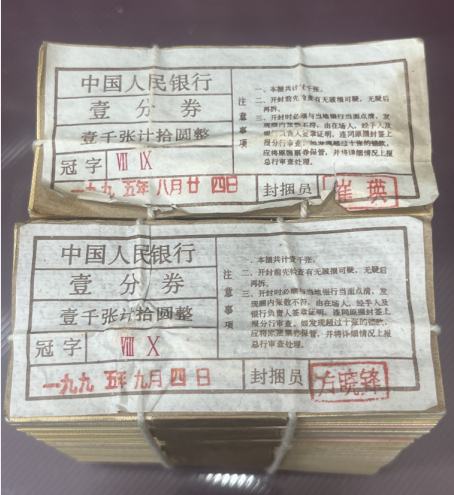 中国人民银行
壹分券
壹千张计拾圆整
冠字 Ⅷ Ⅸ
一九九五年八月廿四日
封捆员 崔瑛
注意事项
一、本捆共计壹千张。
二、开封前先检查有无破损可疑，无疑后
再拆。
三、开封时必须与当地银行当面点清，发
现捆内张数不符，由在场人、经手人及
银行负责人签章证明，连同原捆封签上
报分行审查。如发现超过十张的错款，
应将原腰票券保管，并将详细情况上报
总行审查处理。
中国人民银行
壹分券
壹千张计拾圆整
冠字 Ⅷ Ⅹ
一九九五年九月四日
封捆员 方晓锋
注意事项
一、本捆共计壹千张。
二、开封前先检查有无破损可疑，无疑后
再拆。
三、开封时必须与当地银行当面点清，发
现捆内张数不符，由在场人、经手人及
银行负责人签章证明，连同原捆封签上
报分行审查。如发现超过十张的错款，
应将原腰票券保管，并将详细情况上报
总行审查处理。